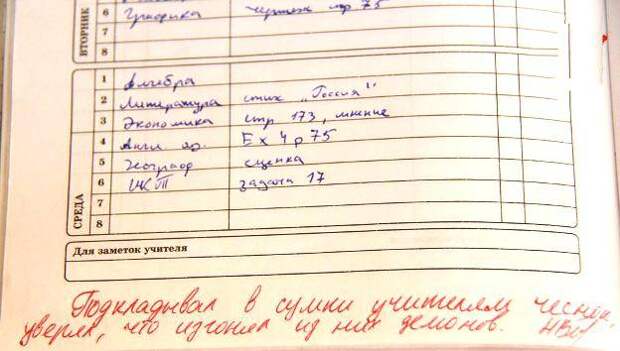 ВТОРНИК
6 Графика чертеж стр 75
7
8
СРЕДА
1 Алгебра
2 Литература стих „Россия"
3 Экономика стр 173, мнение
4 Англ яз. Ex 4 p 75
5 Географ сценка
6 задача 17
7
8
Для заметок учителя
Подкладывал в сумки учителям чеснок,
уверял, что изгонял из них демонов.